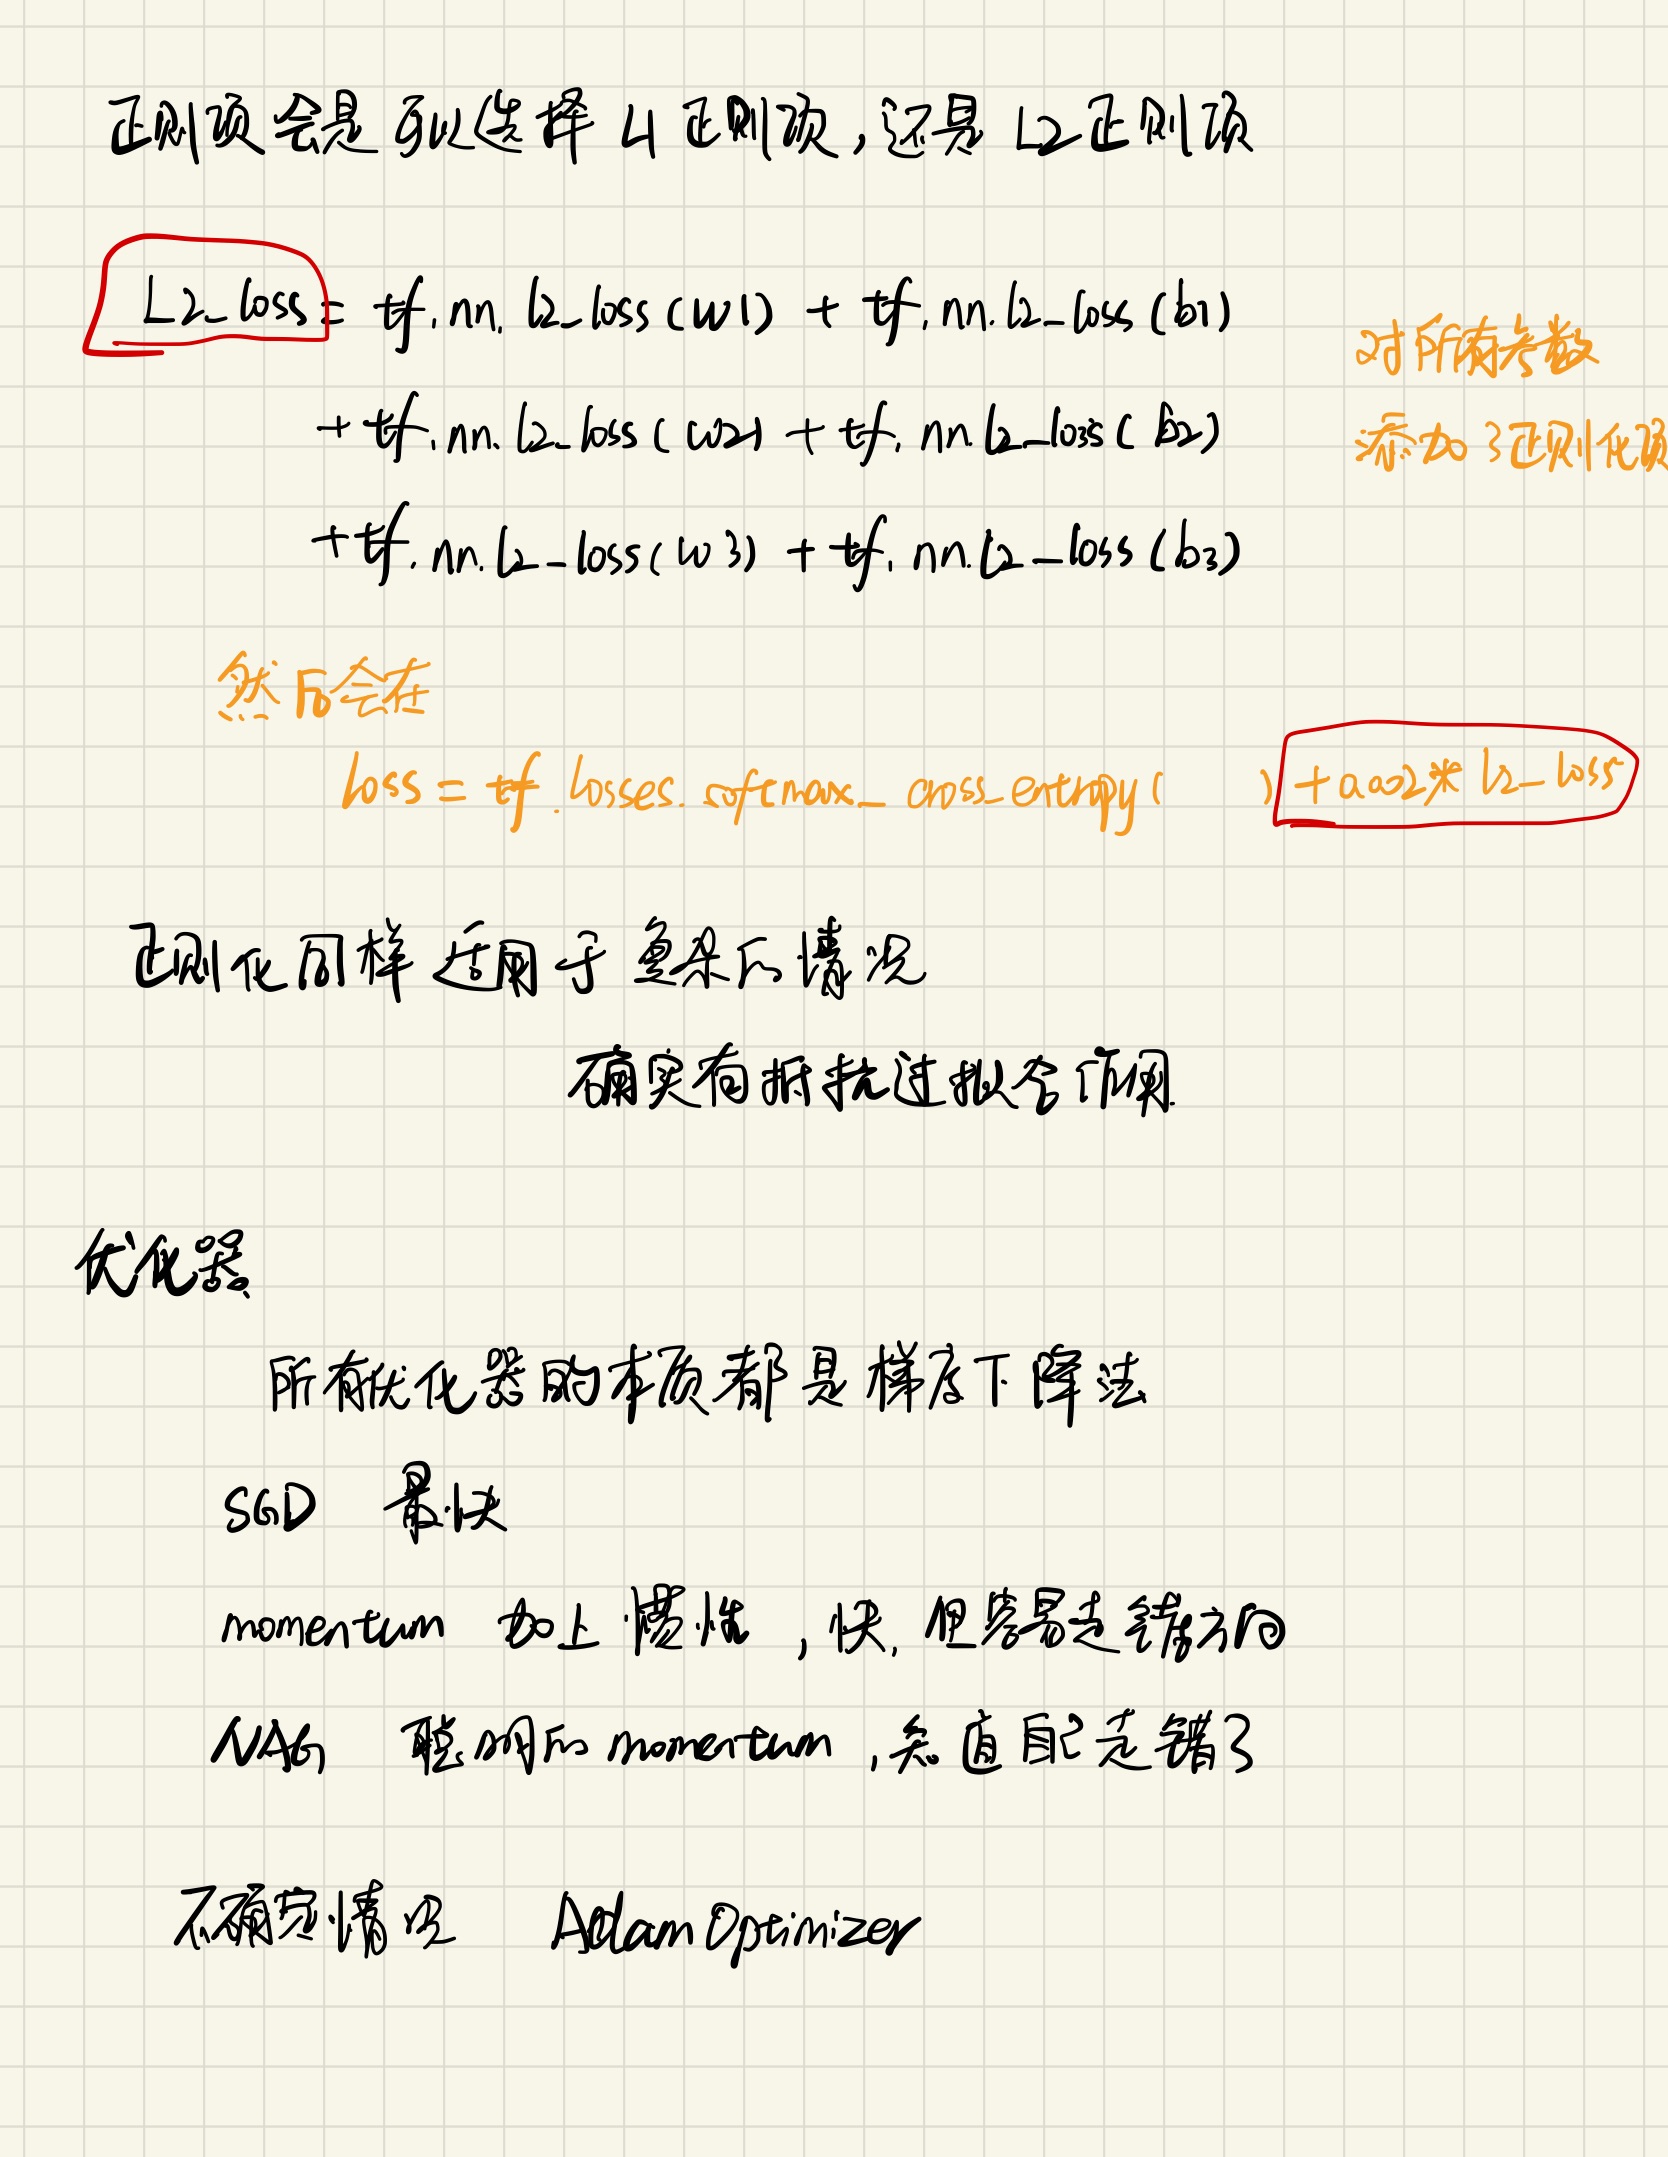 正则项会是可以选择 L1 正则项,还是 L2正则项
L2_loss = tf.nn.l2_loss(w1) + tf.nn.l2_loss(b1)
对所有参数
+ tf.nn.l2_loss(w2) + tf.nn.l2_loss(b2)
添加了正则化项
+ tf.nn.l2_loss(w3) + tf.nn.l2_loss(b3)
然后会在
loss = tf.losses.softmax_cross_entropy( ) + 0.002* l2_loss
正则化同样适用于复杂的情况
确实有抵抗过拟合作用.
优化器
所有优化器的本质都是梯度下降法
SGD 最快
momentum 加上惯性,快,但容易走错方向
NAG 聪明的momentum,知道自己走错了
不确定情况 AdamOptimizer